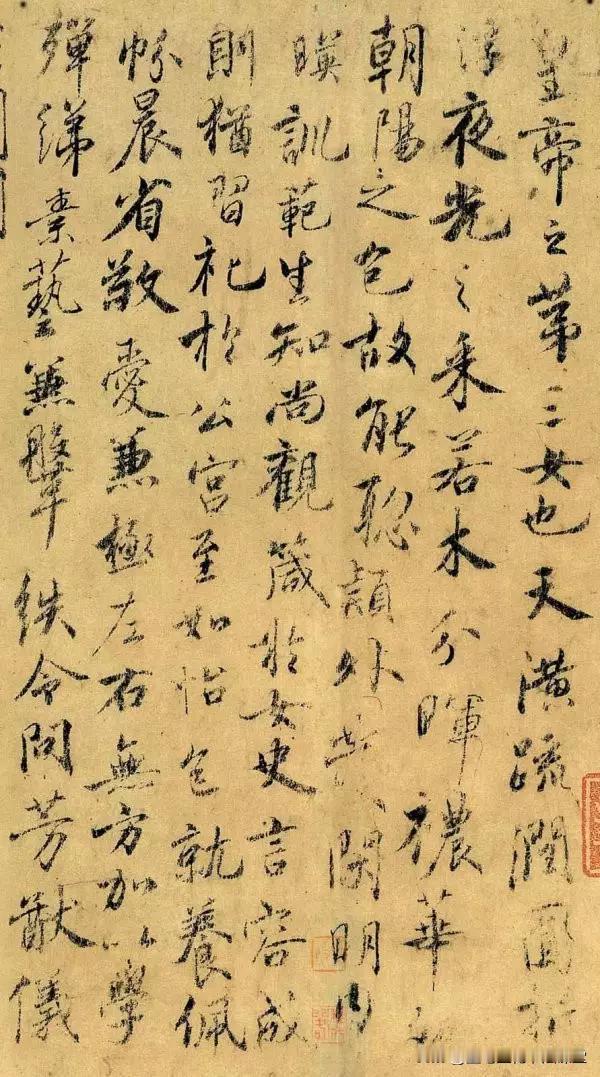 皇帝之第三女也天潢疏潤圓折
浮夜光之采若木分暉穠華
朝陽之色故能聡穎外發閑明内
暎訓範生知尚觀箴於女史言容成
則猶習礼於公宮至如怡色就養佩
帉晨省敬愛兼極左右無方加以學
殫綈素藝兼鞶紩令問芳猷儀